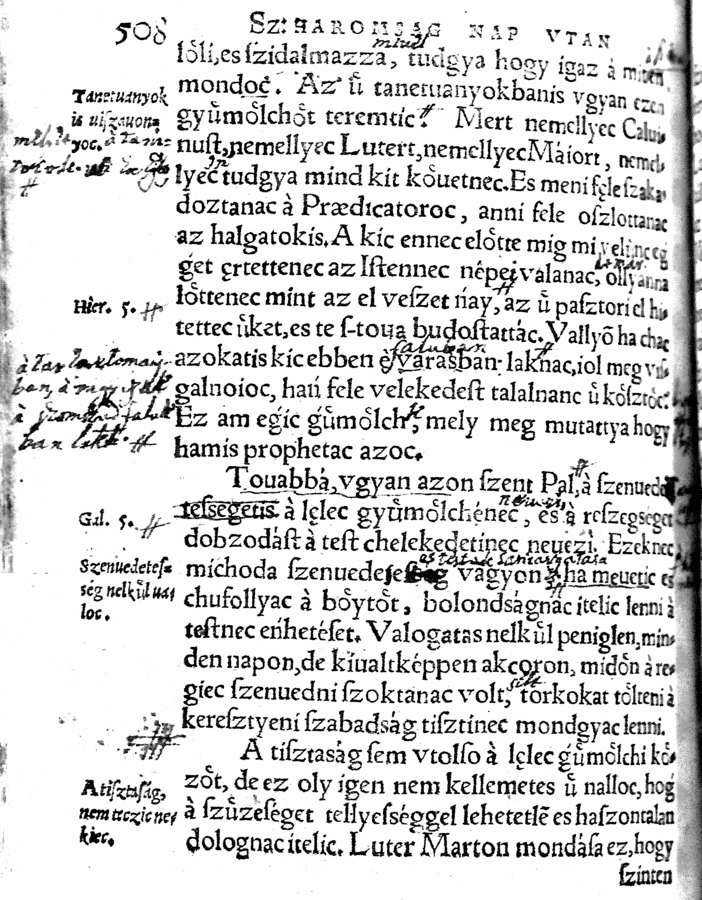 508
Sz: HAROMSAG NAP VTAN
ſóli, es ſzidalmazza, tudgya hogy igaz à miten
mondoc. Az ű tanetuanyokbanis vgyan ezen
gyűmőlchőt teremtic. Mert nemellyec Calui-
nuſt, nemellyec Lutert, nemellyec Màiort, nemel-
lyec tudgya mind kit kőuetnec. Es meni fęle ſzaka-
doztanac à Prædicatoroc, anni fele oſzlottanac
az halgatokis. A kic ennec előtte mig mi velünc eg
get ęrtettenec az Iſtennec népei valanac, ollyanna
lőttenec mint az el veſzet ńay, az ű paſztori el hi-
tettec űket, es te ſ-toua budoſtattàc. Vallyő ha chac
azokatis kic ebben è varasban laknac, iol meg viſ-
galnoioc, hań fele velekedeſt talalnanc ű kőſztőc.
Ez am egic gűmőlch, mely meg mutattya hogy
hamis prophetac azoc.
Touabbá, vgyan azon ſzent Pal, à ſzenuede-
teſsegetis à lęlec gyűmőlchénec, és à reſzegseget
dobzodáſt à teſt chelekedetinec neuezi. Ezeknec
michoda ſzenuedeſeſſeg vagyon ha meuetic es
chufollyac à bőytőt, bolondságnac itelic lenni à
teſtnec eńhetéſet. Valogatas nelkűl peniglen, min-
den napon, de kiualtképpen akcoron, midőn à re-
giec ſzenuedni ſzoktanac volt, tőrkokat tőlteni à
kereſztyeni ſzabadság tiſztinec mondgyac lenni.
A tiſztaság ſem vtolſo à lęlec gűmőlchi kő-
zőt, de ez oly igen nem kellemetes ű nalloc, hog
à ſzűzeſéget tellyeſséggel lehetetlē es haſzontalan
dolognac itelic. Luter Marton mondáſa ez, hogy
ſzinten
Tanetuanyok
is uiſzauon-
yoc.
Hier. 5.
Gal. 5.
Szenuedeteſ-
ség nelkűl uaſ
loc.
A tiſztaſág,
nem teczic neſ
kiec.